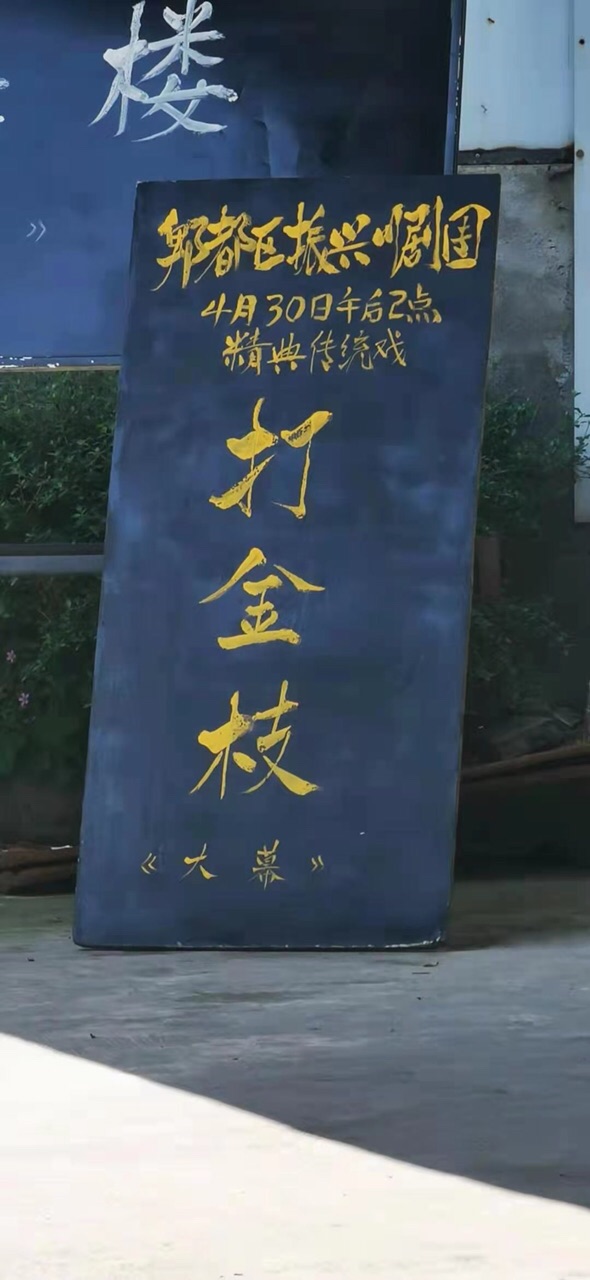 楼
》
郫都区振兴川剧团
4月30日午后2点
精典传统戏
打
金
枝
《大幕》